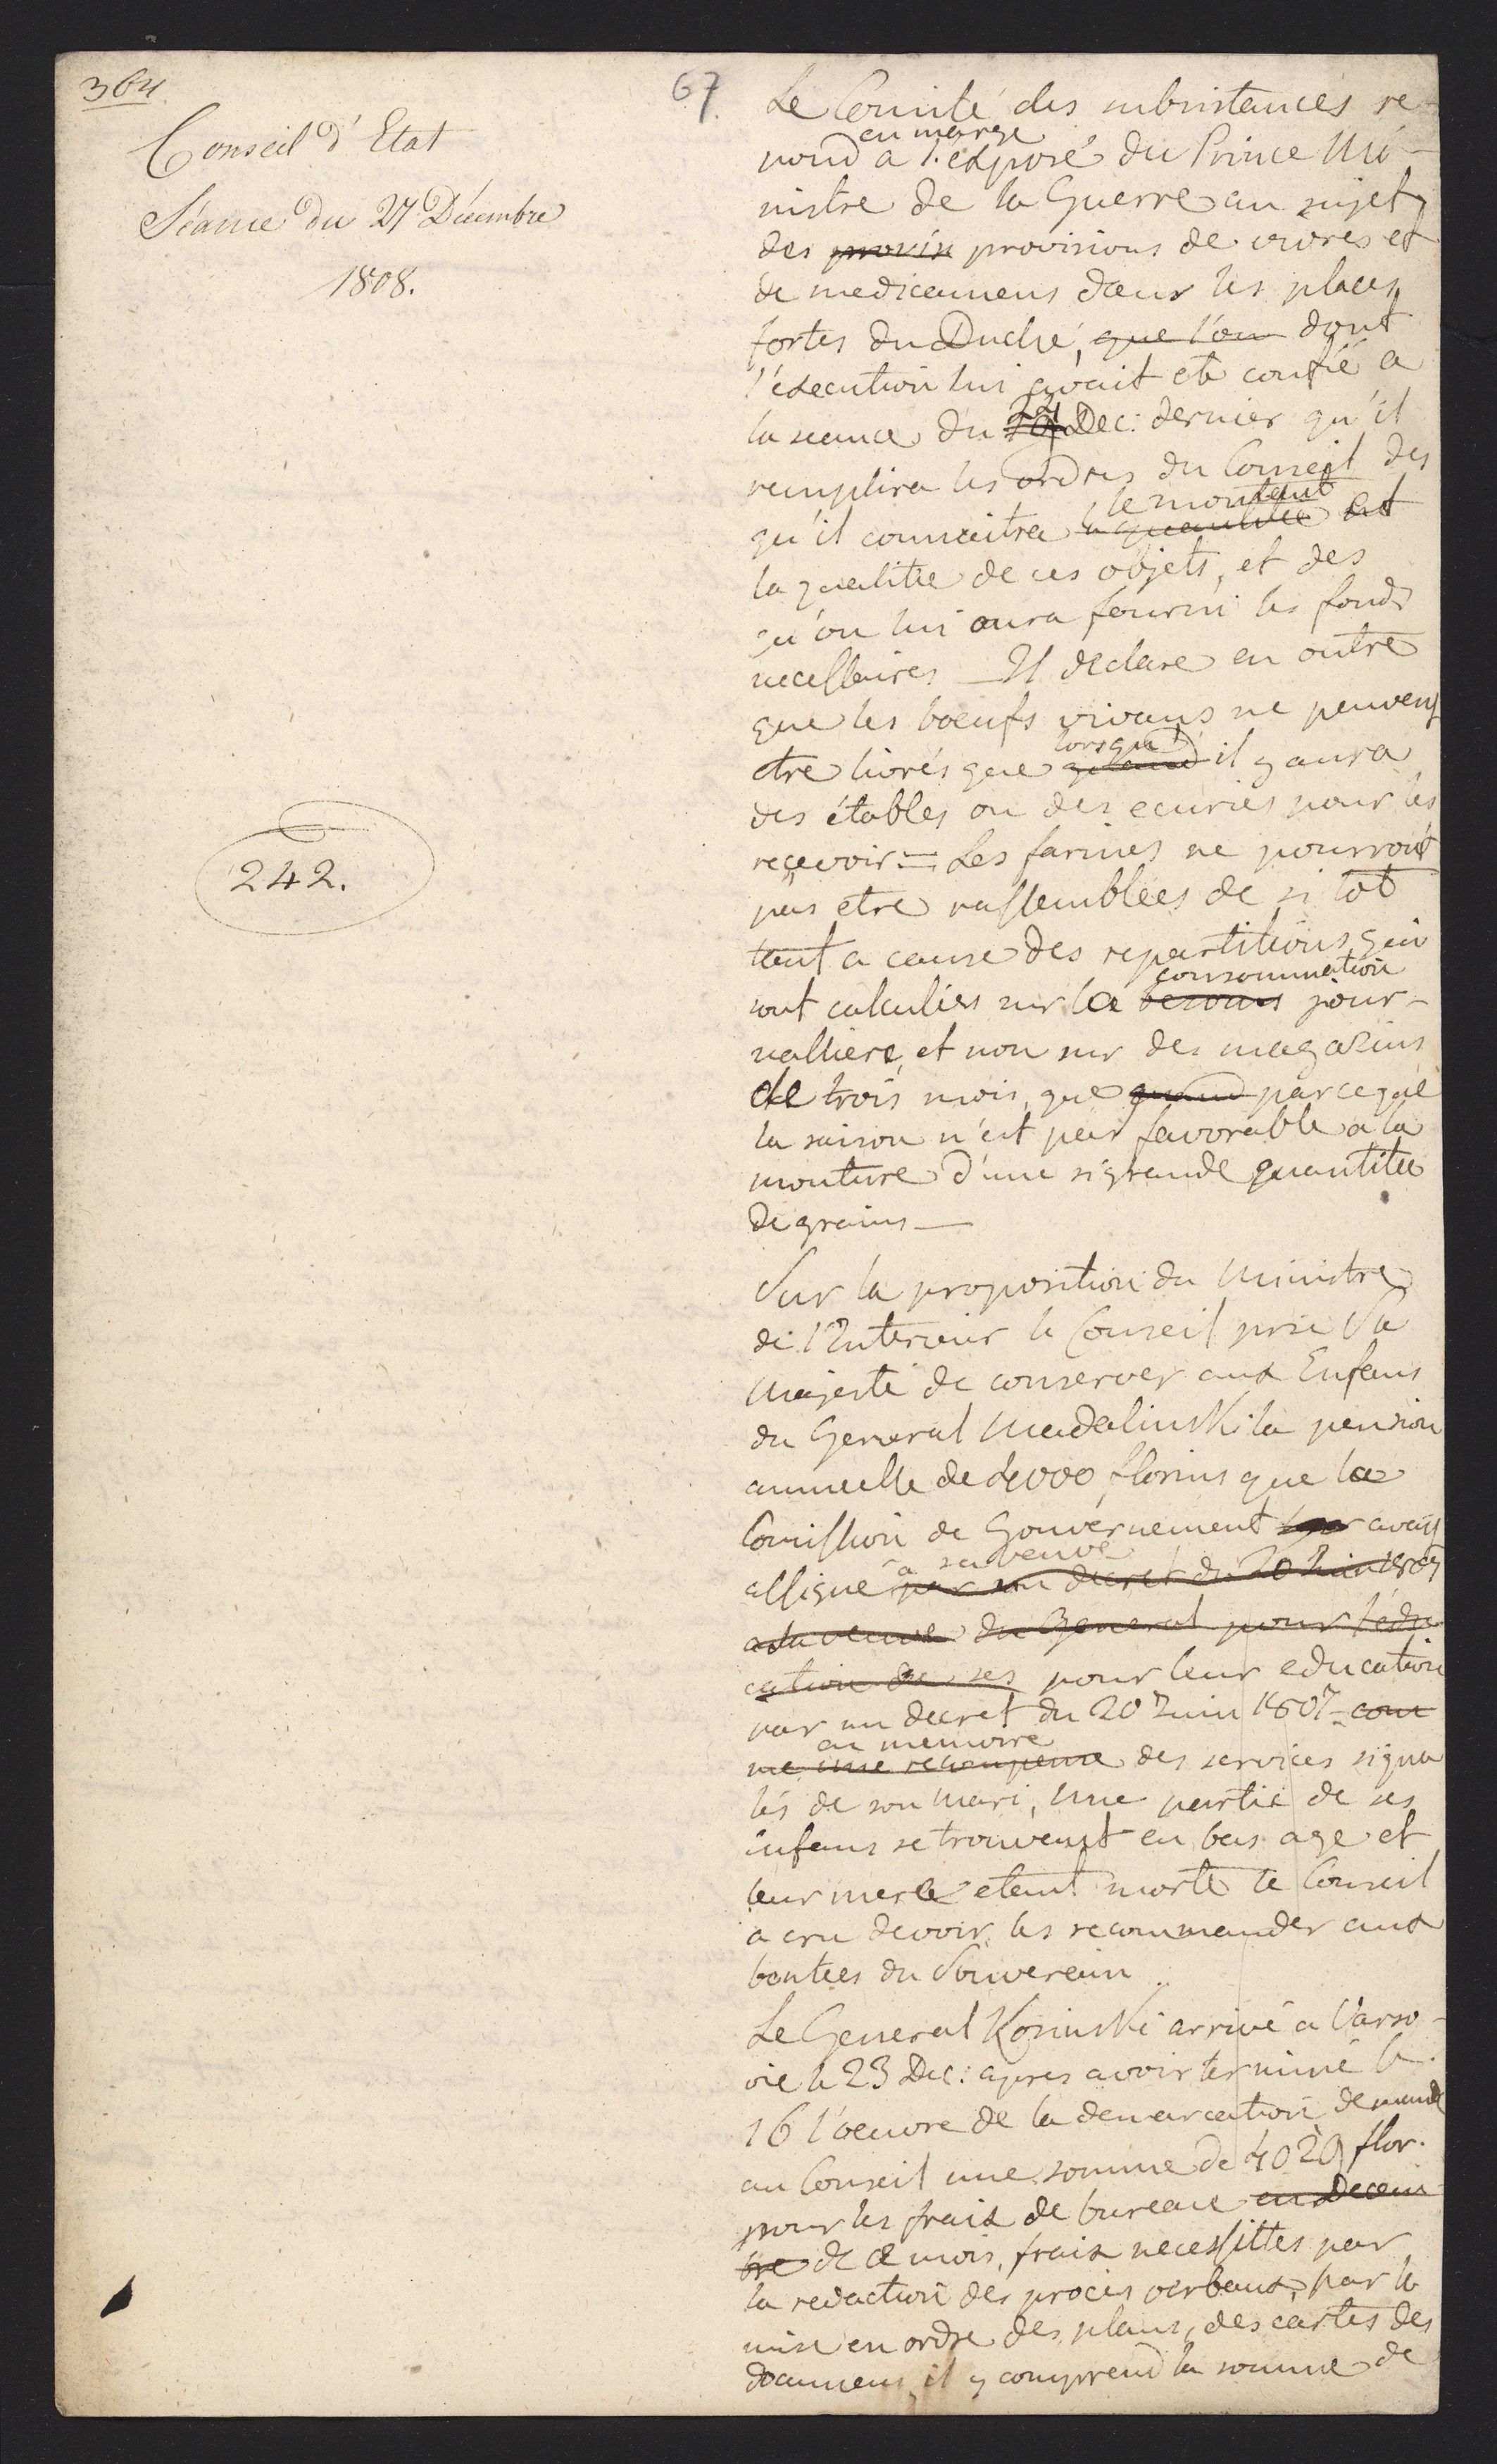 364
67.
Conseil d'Etat
Séance du 27 Décembre
1808.
242.
Le Comité des subsistances re-
en marge
pond a l'exposé du Prince Mi-
nistre de la Guerre au sujet
des provis provisions de vivres et
de medicamens dans les places
fortes du Duché, que l'on dont
l'execution lui avait eté confié a
la seance du Dec: dernier qu'il
remplira les ordres du Conseil des
le montant
qu'il connaitra la quantitée et
la qualitée de ces objets, et des
qu'on lui aura fourni les fonds
necessaires — Il declare en outre
que les boeufs vivans ne peuvent
lorsqu'
etre livrés que quand il y aura
des étables ou des ecuries pour les
reçevoir = Les farines ne pourront
pas etre rassemblées de si tot
tant a cause des repartitions qui
consommation
sont calculées sur la besoins jour-
nalliere, et non sur des magazins
de trois mois, que quand parceque
la saison n'est pas favorable a la
mouture d'une si grande quantitée
de grains —
Sur la proposition du Ministre
de l'Interieur le Conseil prie Sa
Majesté de conserver aux Enfans
du General Madalinski la pension
annuelle de 4000 florins que la
Comission de Gouvernement avait
à sa veuve
assigné par son decret du 20 Juin 1807
a la veuve du General pour l'edu
cation de ses pour leur education
par un decret du 20 Juin 1807 – com
en memoire
me une recompense des services signa
lés de son mari, Une partie de ses
enfans se trouvant en bas age et
leur mere etant morte le Conseil
a cru devoir les recommander aux
bontees du Souverain.
Le General Kosinski arrivé a Varso-
vie le 23 Dec: apres avoir terminé le
16 l'oeuvre de la demarcation demande
au Conseil une somme de 4029 flor.
pour les frais de bureau en Decem
bre de ce mois, frais necessittés par
la redaction des procès verbaux, par la
mise en ordre des plans, des cartes des
documens, il y comprend la somme de